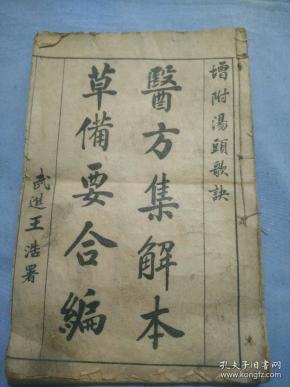 增附湯頭歌訣
醫方集解本
草備要合編
武進王浩署
孔夫子旧书网